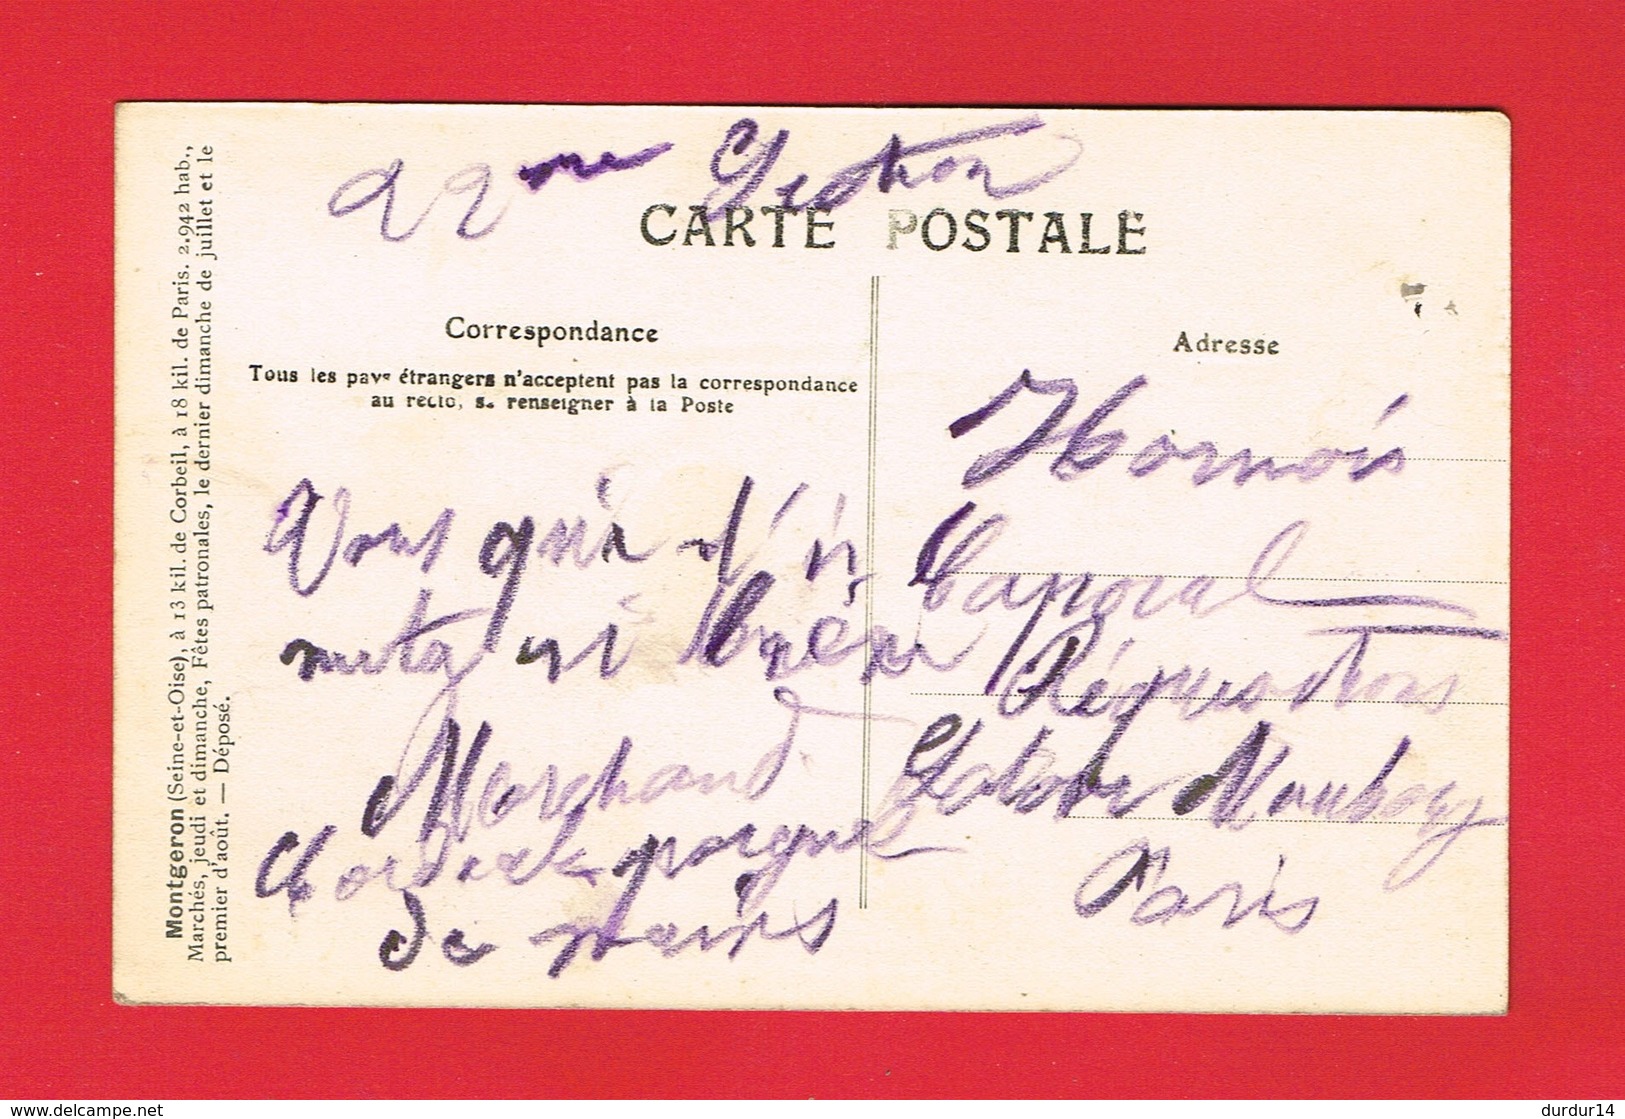 22me Section
CARTE POSTALE
Correspondance
Tous les pays étrangers n'acceptent pas la correspondance
au recto, se renseigner à la Poste
Vous qui
ni
Marchand
Cordiale poignée
de mains
Adresse
Hornois
Caporal
Réquisitions
Station Maubourg
Paris
Montgeron (Seine-et-Oise), à 13 kil. de Corbeil, à 18 kil. de Paris. 2.942 hab.,
Marchés, jeudi et dimanche, Fêtes patronales, le dernier dimanche de juillet et le
premier d'août. — Déposé.
www.delcampe.net
durdur14